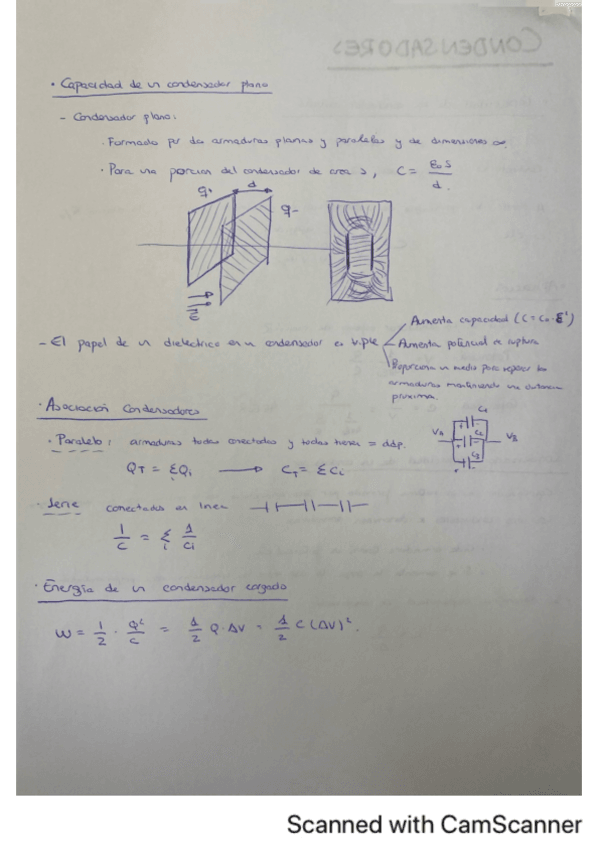 · Capacidad de un condensador plano
- Condensador plano:
· Formado por dos armaduras planas y paralelas y de dimensiones ∞.
· Para una porcion del condensador de area s, C = ε₀ S / d.
q+ d q-
E
- El papel de un dieléctrico en un condensador es triple
Aumenta capacidad (C = C₀ · ε')
Aumenta potencial de ruptura
Proporciona un medio para separar las
armaduras manteniendo una distancia
próxima.
· Asociación Condensadores
· Paralelo: armaduras todas conectadas y todas tienen = ddp.
V_A C₁ C₂ C₃ V_B
Q_T = ΣQᵢ → C_T = ΣCᵢ
· Serie conectados en línea
1/C = Σᵢ 1/Cᵢ
· Energía de un condensador cargado
W = 1/2 · Q²/C = 1/2 Q · ΔV = 1/2 C (ΔV)².
Scanned with CamScanner